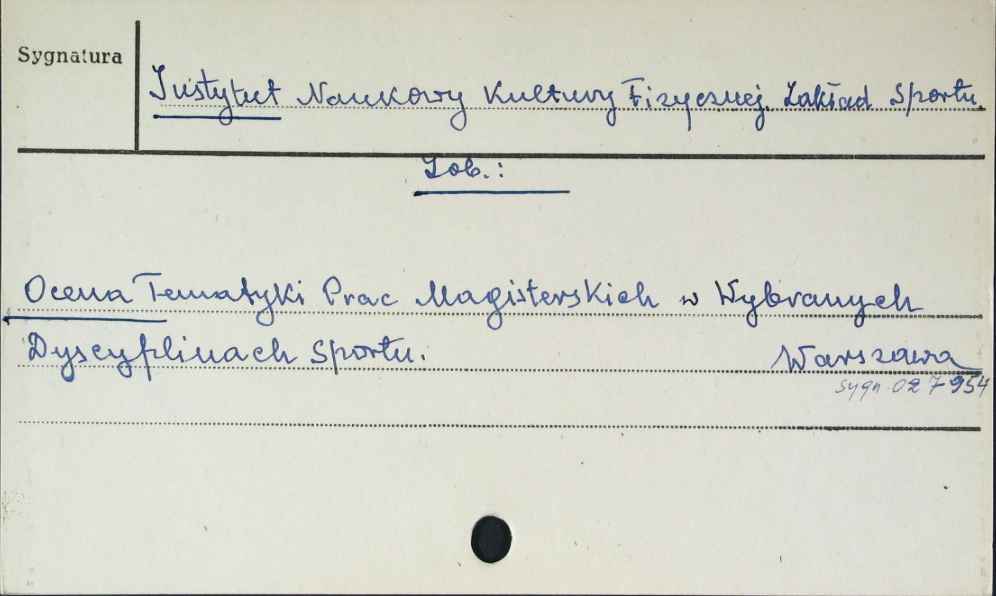 Sygnatura
Instytut Naukowy Kultury Fizycznej. Zakład Sportu.
Zob.:
Ocena Tematyki Prac Magisterskich w Wybranych
Dyscyplinach Sportu.
Warszawa
sygn. 027954